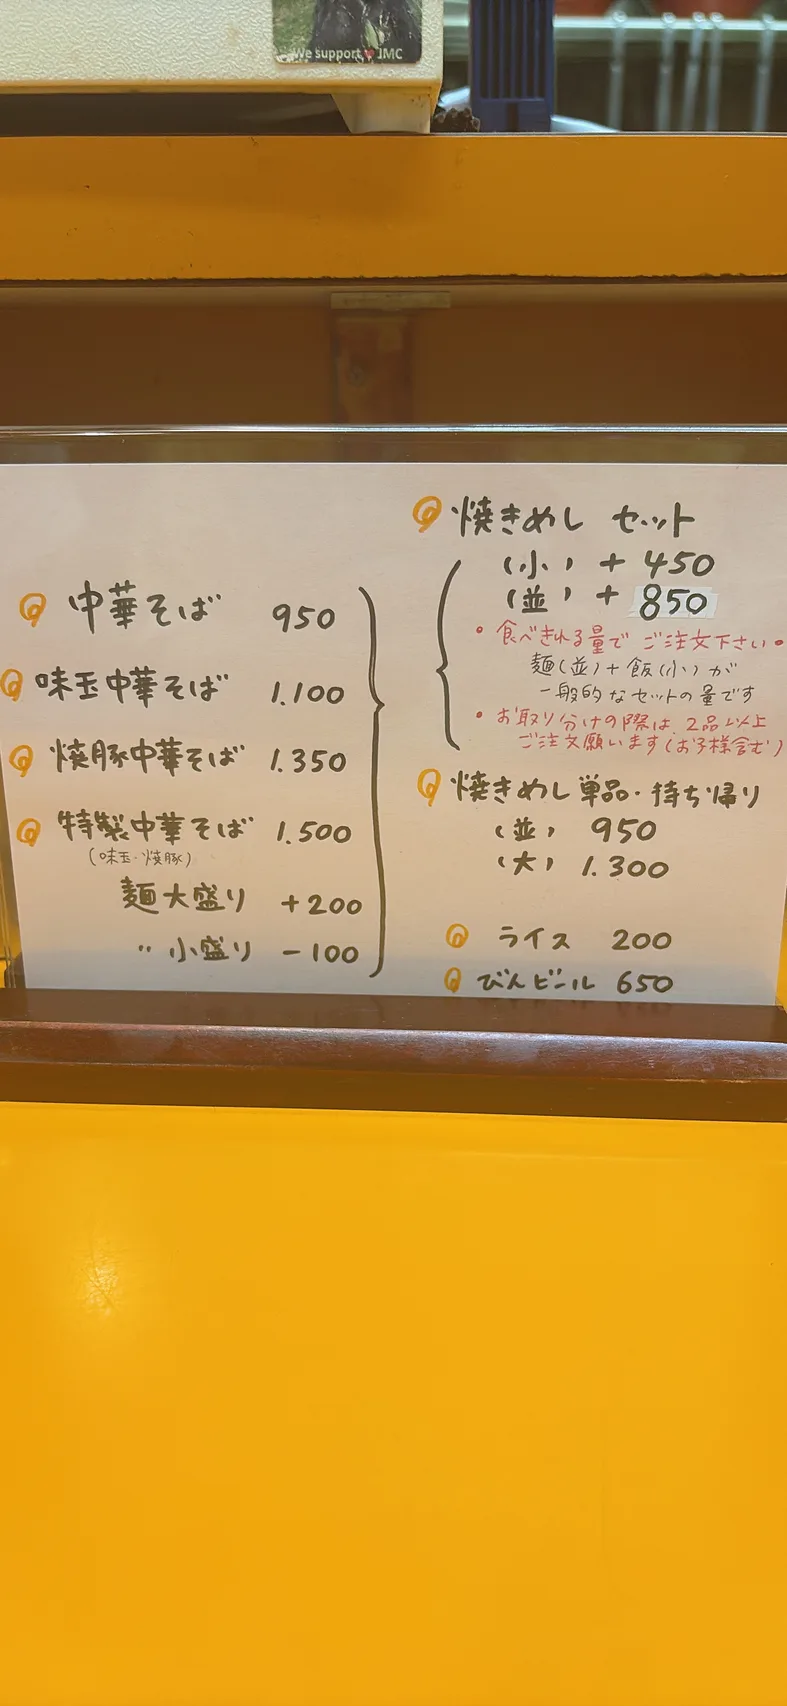 We support ❤ JMC
中華そば 950
味玉中華そば 1.100
焼豚中華そば 1.350
特製中華そば 1.500
(味玉・焼豚)
麺大盛り +200
〃 小盛り -100
焼きめし セット
(小) + 450
(並) + 850
・食べきれる量で ご注文下さい。
麺(並)+飯(小)が
一般的なセットの量です
・お取り分けの際は、2品以上
ご注文願います(お子様含む)
焼きめし単品・待ち帰り
(並) 950
(大) 1.300
ライス 200
びんビール 650